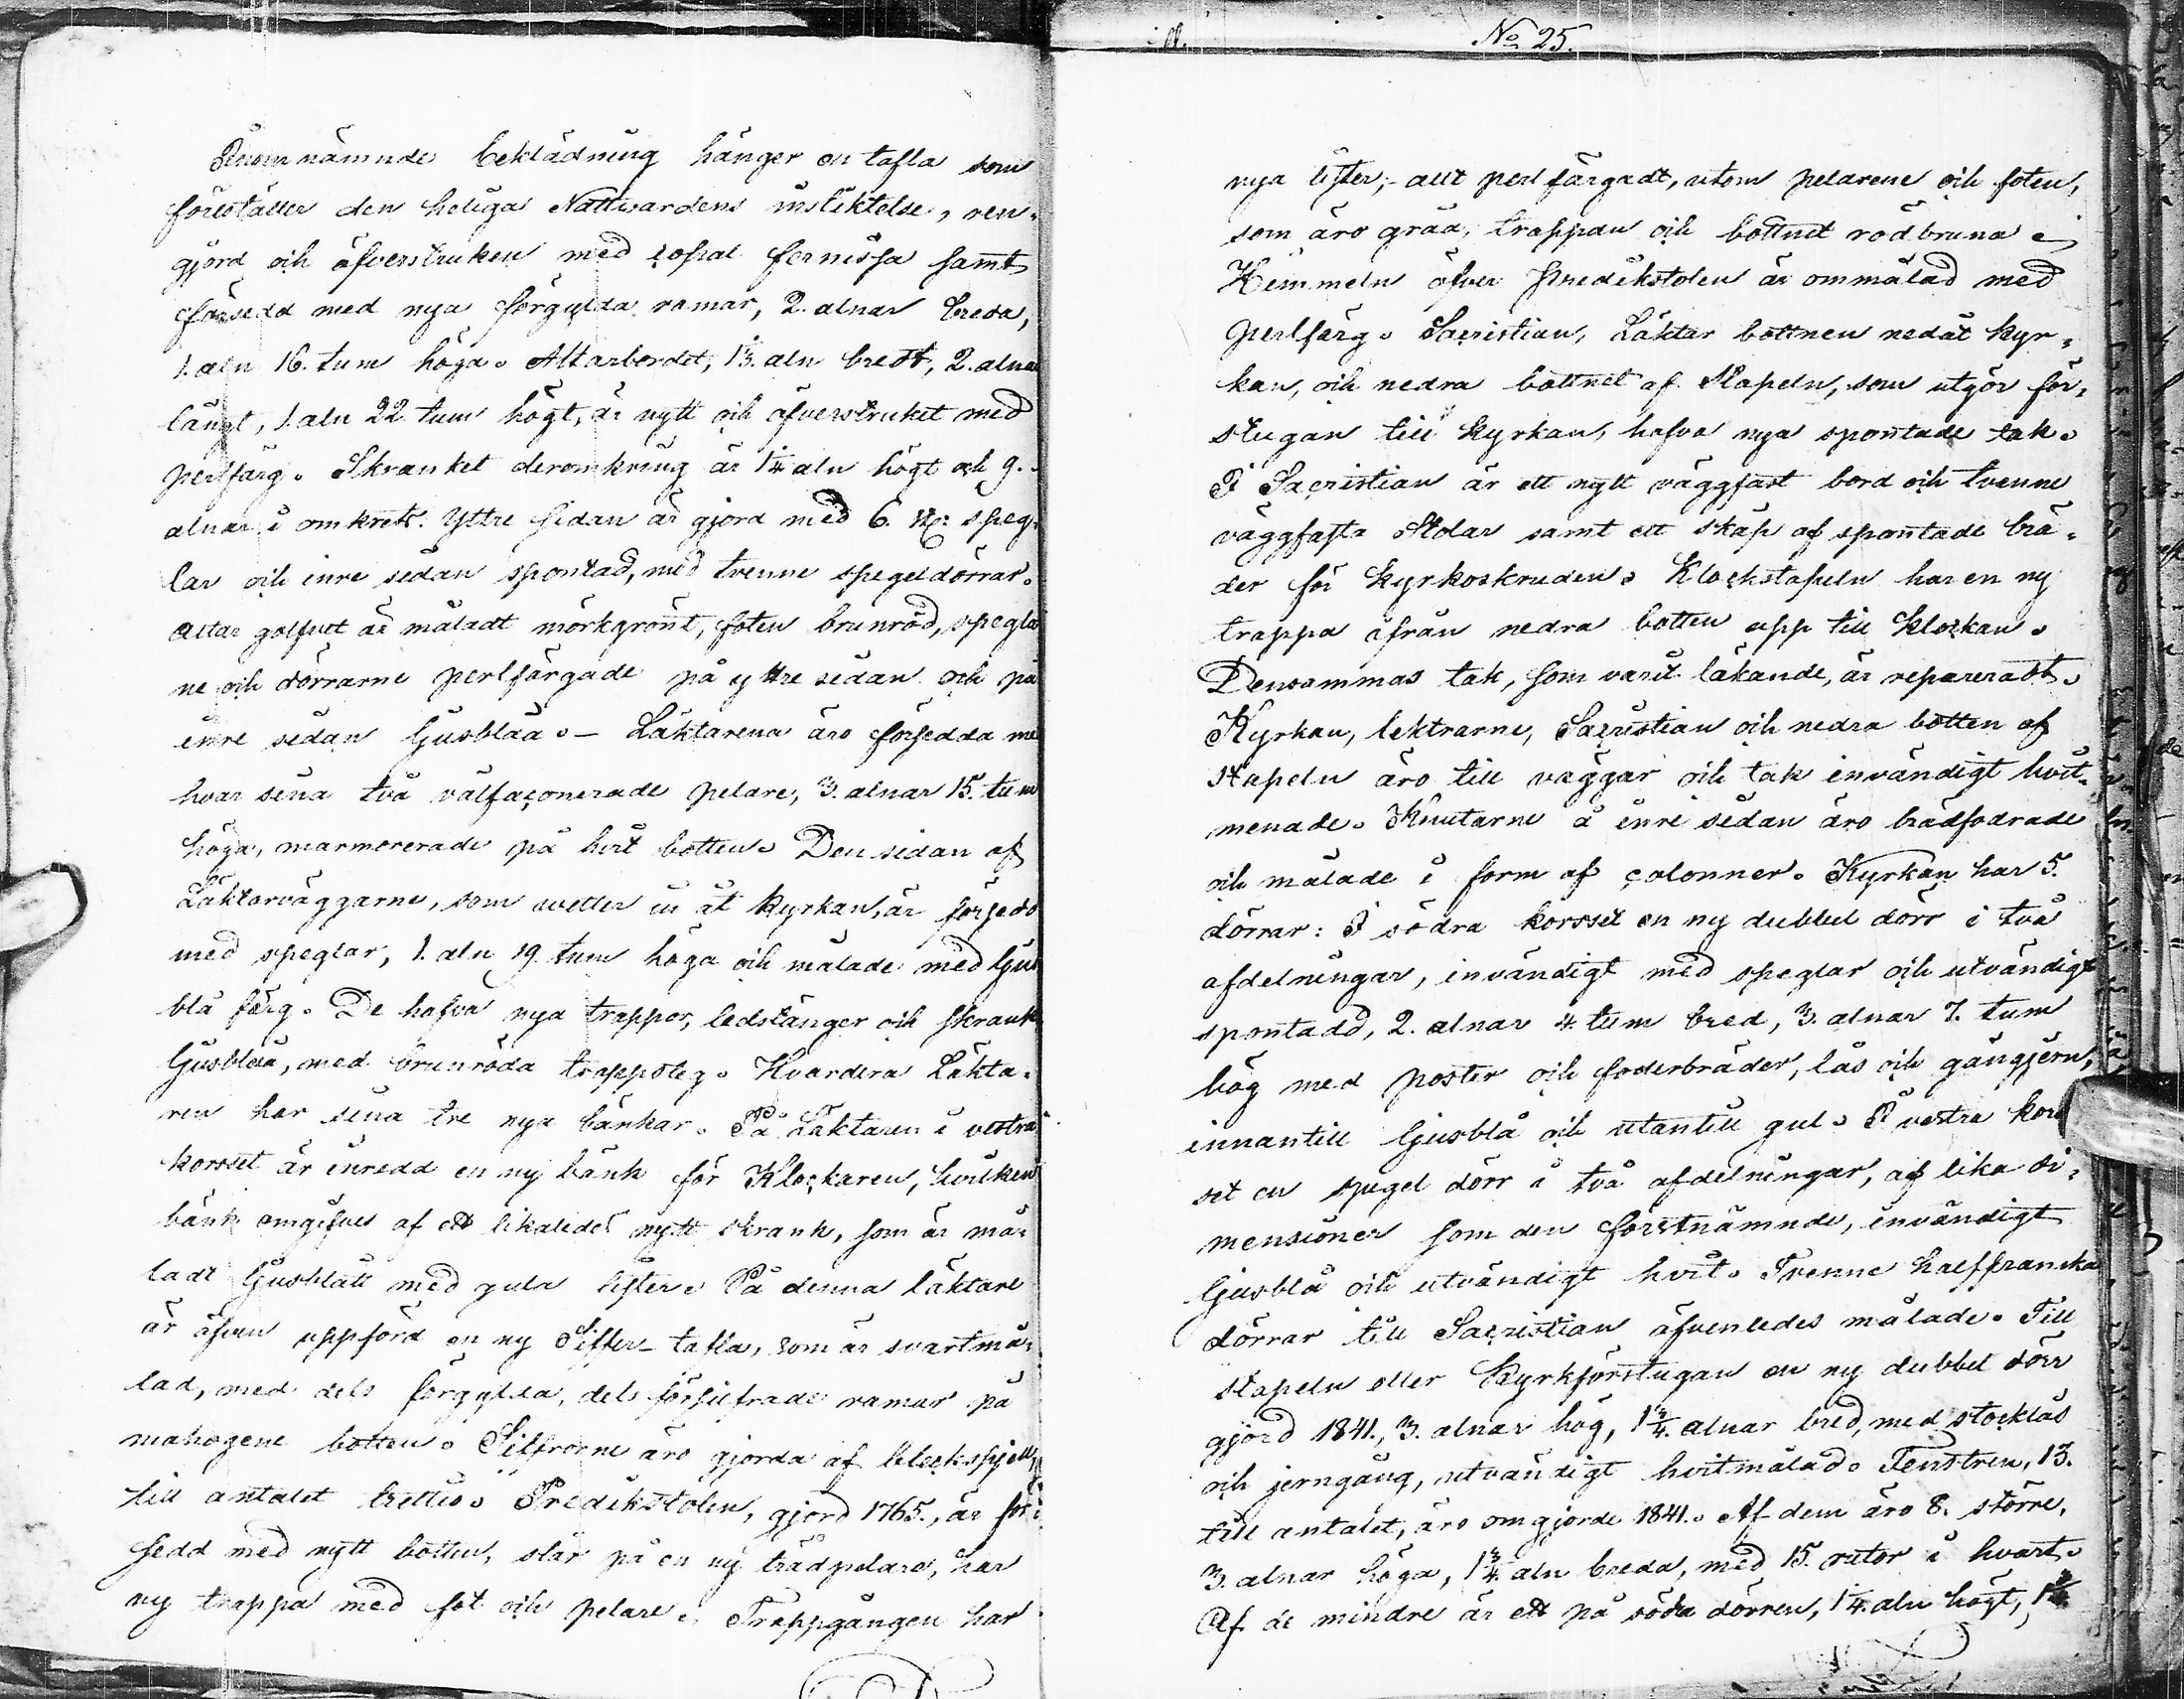 nämnde beklädning hänger en tafla som
föreställer den heliga Nattwardens instiktelse, ren-
gjord och öfverstruken med copal fernissa samt
försedd med nya förgylda ramar, 2. alnar breda,
1. aln 16. tum höga. Altarbordet, 1½. aln bredt, 2. alnar
långt, 1. aln 22 tum högt, är nytt och öfverstruket med
perlfärg. Skranket deromkring är 1¼ aln högt och 9.
alnar i omkrets. Yttre sidan är gjord med 6. st: speg-
lar och inre sidan spontad, med tvenne spegeldörrar.
Altar golfvet är måladt mörkgrönt, foten brunröd, speglar
ne och dörrarne perlfärgade på yttre sidan och på
inre sidan ljusblåa. – Läktarena äro försedda med
hvar sina två välfaçonerade pelare, 3. alnar 15. tum
höga, marmorerade på hvit botten. Den sidan af
Läktarväggarne, som wetter in åt kyrkan, är försedd
med speglar, 1. aln 19. tum höga och målade med ljus
blå färg. De hafva nya trappor, ledstänger och skrank
ljusblåa, med brunröda trappsteg. Hvardera Läkta-
ren har sina tre nya bänkar. På Läktaren i vestra
korsset är inredd en ny bänk för Klockaren, hvilken
bänk omgifves af ett likaledes nytt skrank, som är må-
ladt ljusblått med gula lister. På denna läktare
är äfven uppförd en ny Siffer-tafla, som är svartmå-
lad, med dels förgylda, dels försilfrade ramar på
mahogene botten. Siffrorne äro gjorda af bleckspjell,
till antalet trettio. Predikstolen, gjord 1765., är för-
sedd med nytt botten, står på en ny trädpelare, har
ny trappa med fot och pelare. Trappgången har
No 25.
nya lister; allt perlfärgadt, utom pelarene och foten,
som äro gråa, trappan och bottnet rödbruna
Himmeln öfver Predikstolen är ommålad med
perlfärg. Sacristian, Läktar bottnen nedåt kyr-
kan, och nedra bottnet af Stapeln, som utgör för-
stugan till kyrkan, hafva nya spontade tak.
I Sacristian är ett nytt väggfast bord och tvenne
väggfasta Stolar samt ett skåp af spontade brä-
der för kyrkoskruden. Klockstapeln har en ny
trappa ifrån nedra botten upp till klockan.
Densammas tak, som varit läkande, är repareradt.
Kyrkan, lektrarne, Sacristian och nedra botten af
stapeln äro till väggar och tak invändigt hvit-
menade. Knutarne å inre sidan äro brädfodrade
och målade i form af colonner. Kyrkan har 5.
dörrar: I södra korsset en ny dubbel dörr i två
afdelningar, invändigt med speglar och utvändigt
spontadd, 2. alnar 4. tum bred, 3. alnar 7. tum
hög med poster och foderbräder, lås och gångjern,
innantill ljusblå och utantill gul. I vestra kors
set en spegel dörr i två afdelningar, af lika di-
mensioner som den förstnämnde, invändigt
ljusblå och utvändigt hvit. Tvenne halffranska
dörrar till Sacristian äfvenledes målade. Till
stapeln eller Kyrkförstugan en ny dubbel dörr
gjord 1841., 3. alnar hög, 1¾. alnar bred, med stocklås
och jerngång, utvändigt hvitmålad. Fenstren, 13.
till antalet, äro omgjorde 1841. Af dem äro 8. större,
3. alnar höga, 1¾ aln breda, med 15. rutor i hvart.
Af de mindre är ett på södra dörren, 1¼. aln högt,